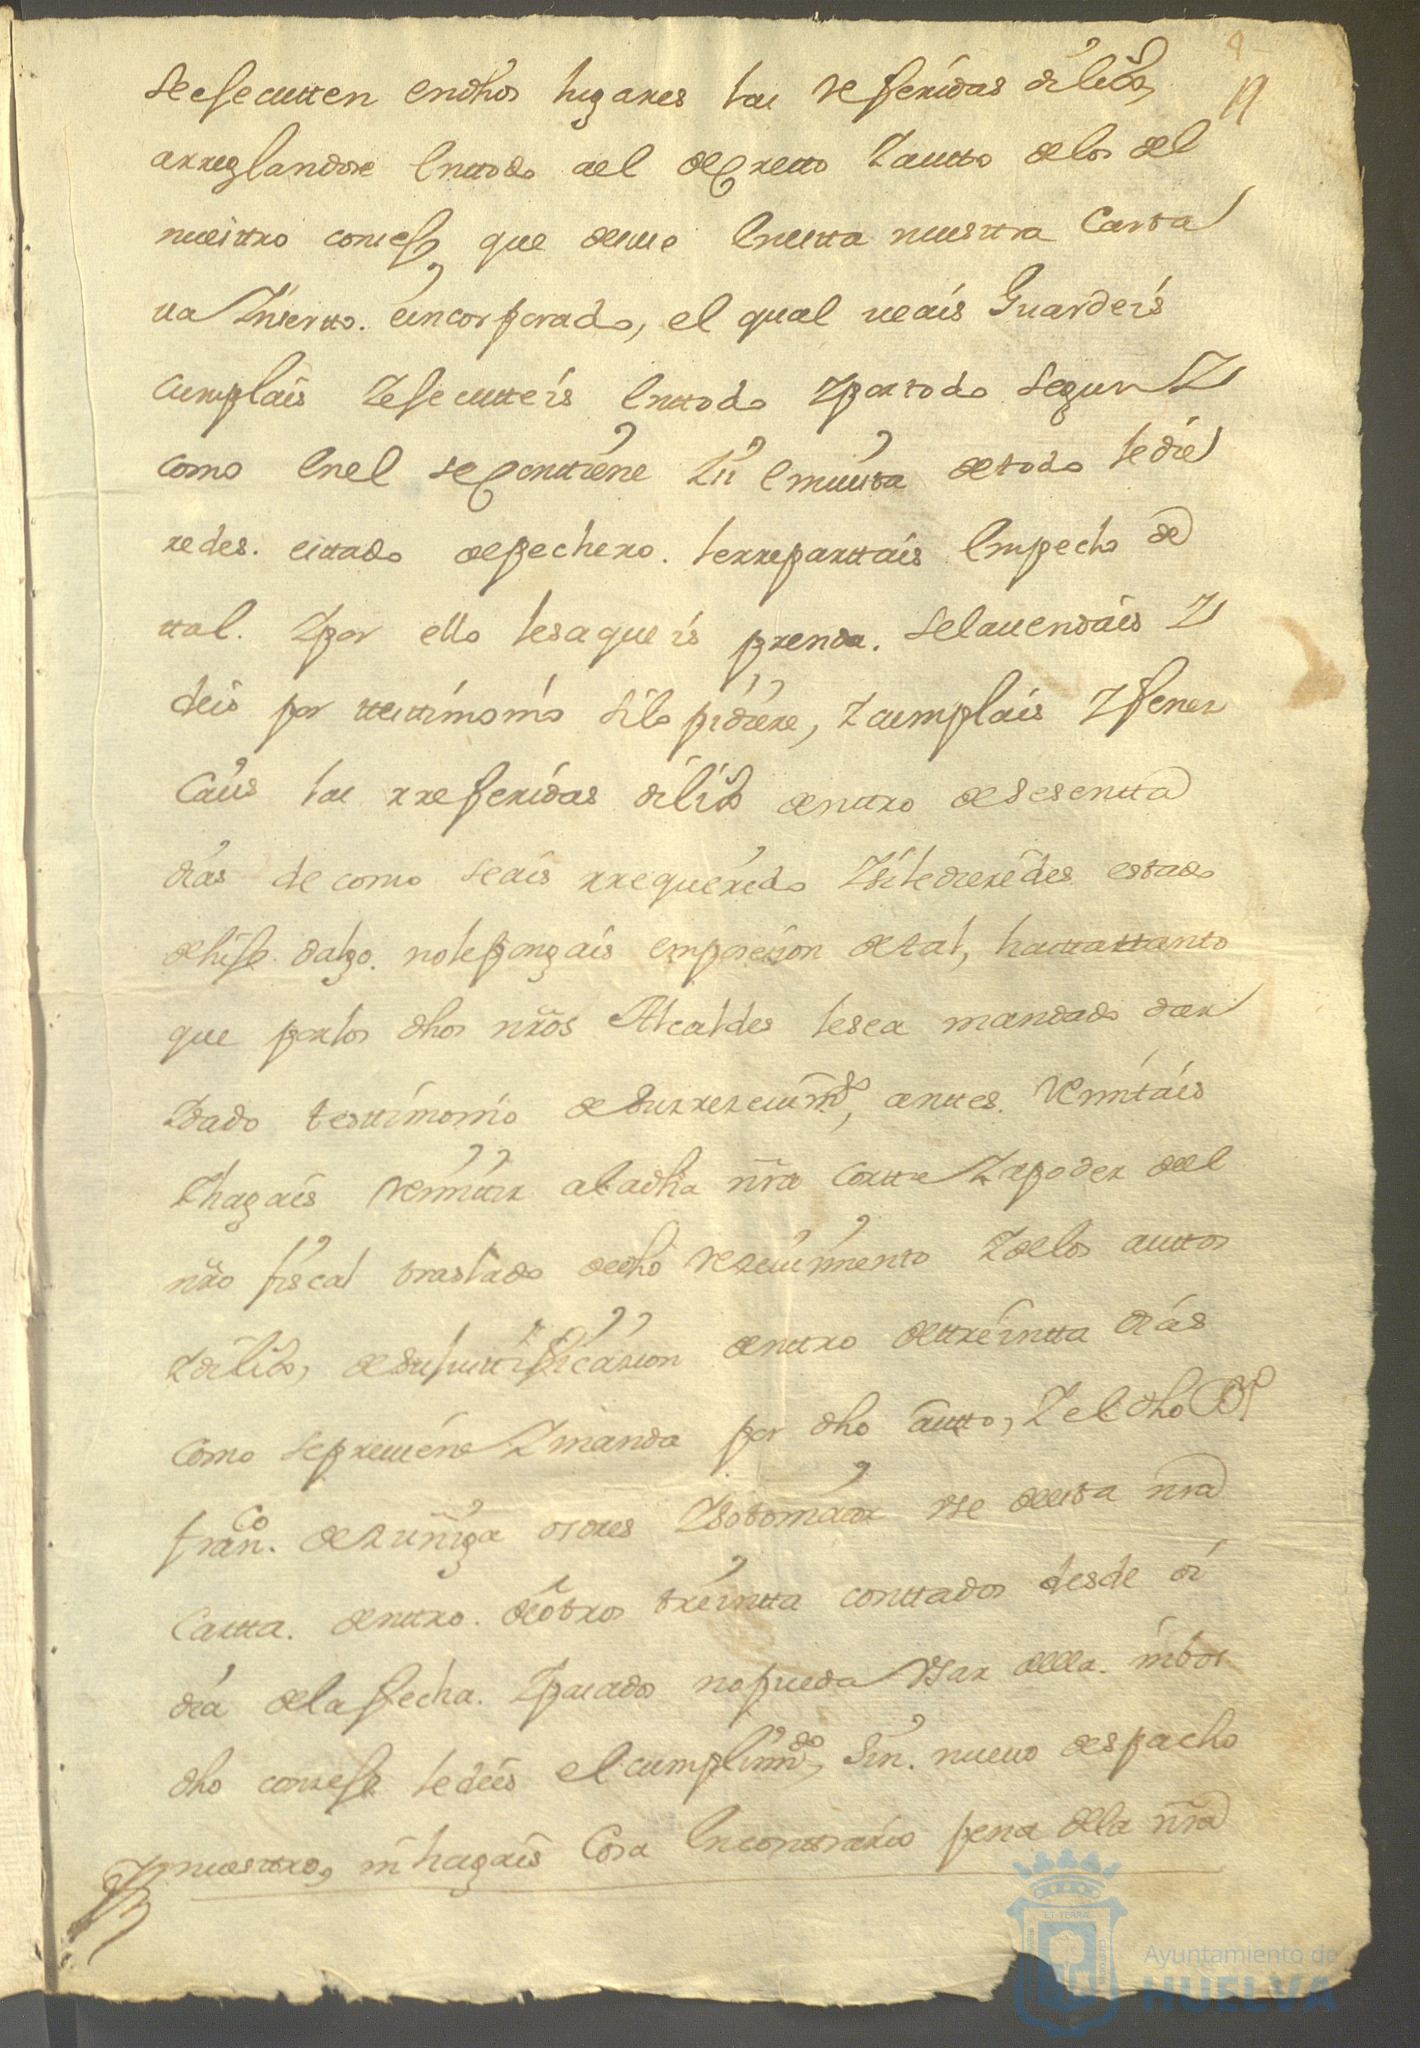 8
19
se executten en dhos lugares las referidas dilizs,
arreglandose enttodo ael decretto y autto delos del
nuesttro consejo que deuuo enestta nuesttra Cartta
ua ynsertto. e incorporado, el qual ueais Guardeis
cumplais y executteis enttodo y portodo segun y
como enel se conttiene y si en uirtta de todo le die
redes. esttado de pechero. le rreparttais en pecho de
ttal. y por ello le saqueis prenda. se la uendais y
deis por ttesttimonio si lo pidiere, y cumplais y fenez
Cais las rreferidas diliz denttro de sesentta
dias de como seais rrequerido y si le diereides estado
de hijo dalgo. no le pongais en posesion de tal, hastta ttanto
que por los dhos nros Alcaldes le sea mandado dar
y dado testtimonio de su rreceuimto, anttes. Remitais
y hagais Remitir a la dha nra Cortte y a poder del
nro fiscal traslado de dho Reseuimiento y de los auttos
y diliz, de su justtificazion denttro de ttreintta dias
como se preuiene y manda por dho autto, y el dho Dn
franco. de zuñiga osores y sotomaior vse de esta nra
Cartta. denttro. de otros treintta conttados desde oi
dia de la fecha. y pasados no pueda vsar della. ni vos
dho consejo le deis el cumplimto, sin. nueuo despacho
y nuesttro, ni hagais Cosa en conttrario pena de la nra
ET TERRAE
Ayuntamiento de
HUELVA